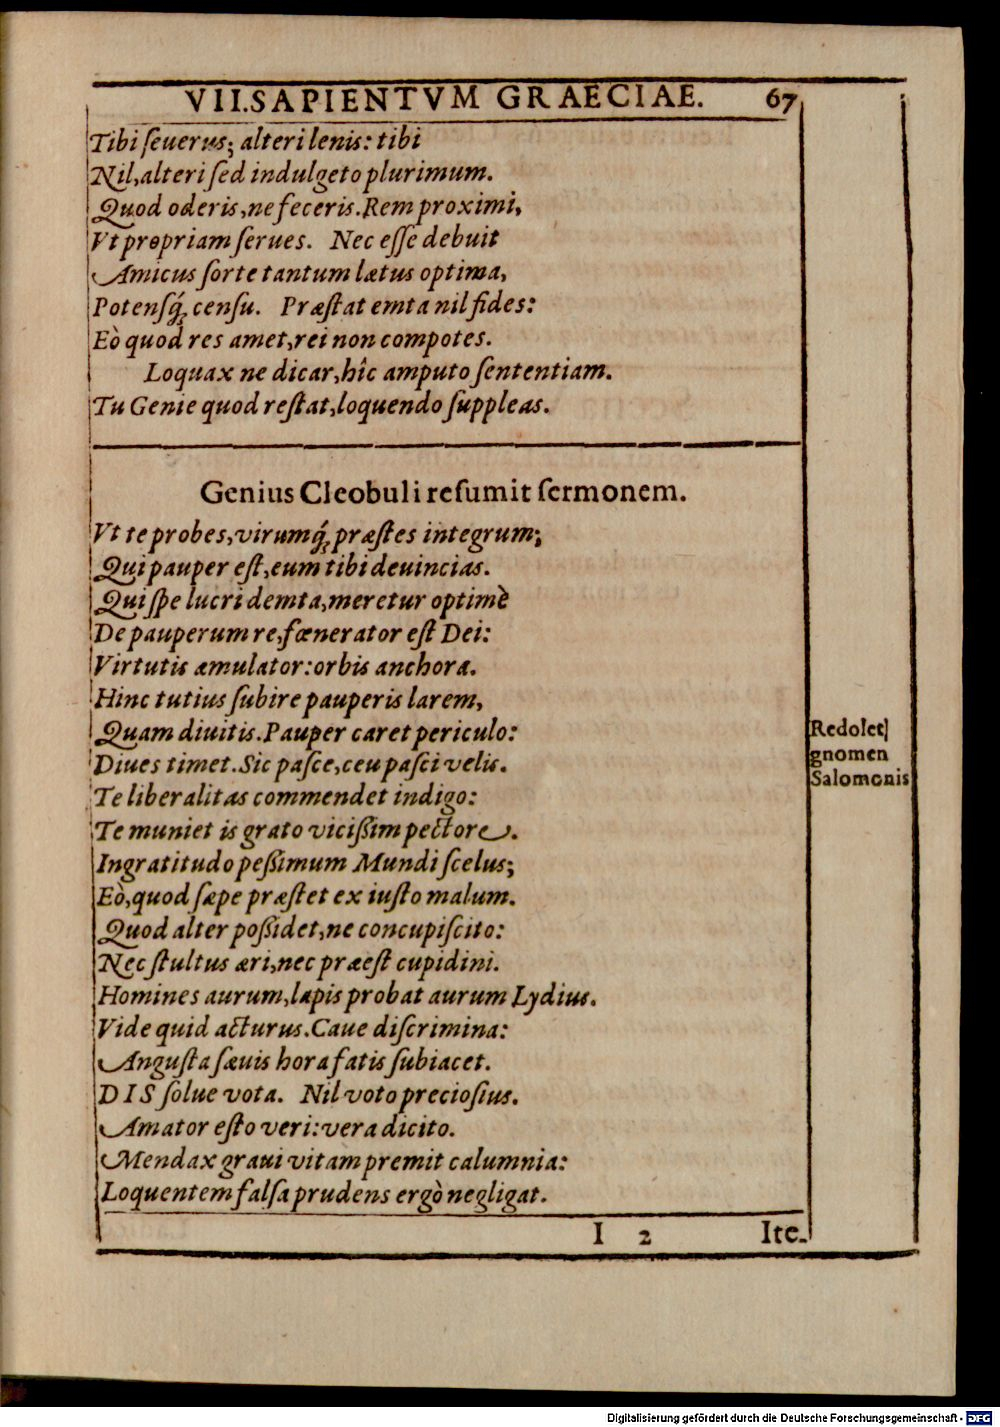 VII. SAPIENTVM GRAECIAE. 67
Tibi ſeuerus; alteri lenis: tibi
Nil, alteri ſed indulgeto plurimum.
Quod oderis, ne feceris. Rem proximi,
Vt propriam ſerues. Nec eſſe debuit
Amicus ſorte tantum lætus optima,
Potensq́; cenſu. Præſtat emta nil fides:
Eò quod res amet, rei non compotes.
Loquax ne dicar, hîc amputo ſententiam.
Tu Genie quod reſtat, loquendo ſuppleas.
Genius Cleobuli reſumit ſermonem.
Vt te probes, virumq́; præſtes integrum;
Qui pauper eſt, eum tibi deuincias.
Qui ſpe lucri demta, meretur optimè
De pauperum re, fœnerator eſt Dei:
Virtutis æmulator: orbis anchora.
Hinc tutius ſubire pauperis larem,
Quam diuitis. Pauper caret periculo:
Diues timet. Sic paſce, ceu paſci velis.
Te liberalitas commendet indigo:
Te muniet is grato viciſſim pectore.
Ingratitudo peſſimum Mundi ſcelus;
Eò, quod ſæpe præſtet ex iuſto malum.
Quod alter poſſidet, ne concupiſcito:
Nec ſtultus æri, nec præeſt cupidini.
Homines aurum, lapis probat aurum Lydius.
Vide quid acturus. Caue diſcrimina:
Anguſta ſæuis hora fatis ſubiacet.
DIS ſolue vota. Nil voto precioſius.
Amator eſto veri: vera dicito.
Mendax graui vitam premit calumnia:
Loquentem falſa prudens ergò negligat.
Redolet
gnomen
Salomonis
I 2 Ite-
Digitalisierung gefördert durch die Deutsche Forschungsgemeinschaft - DFG